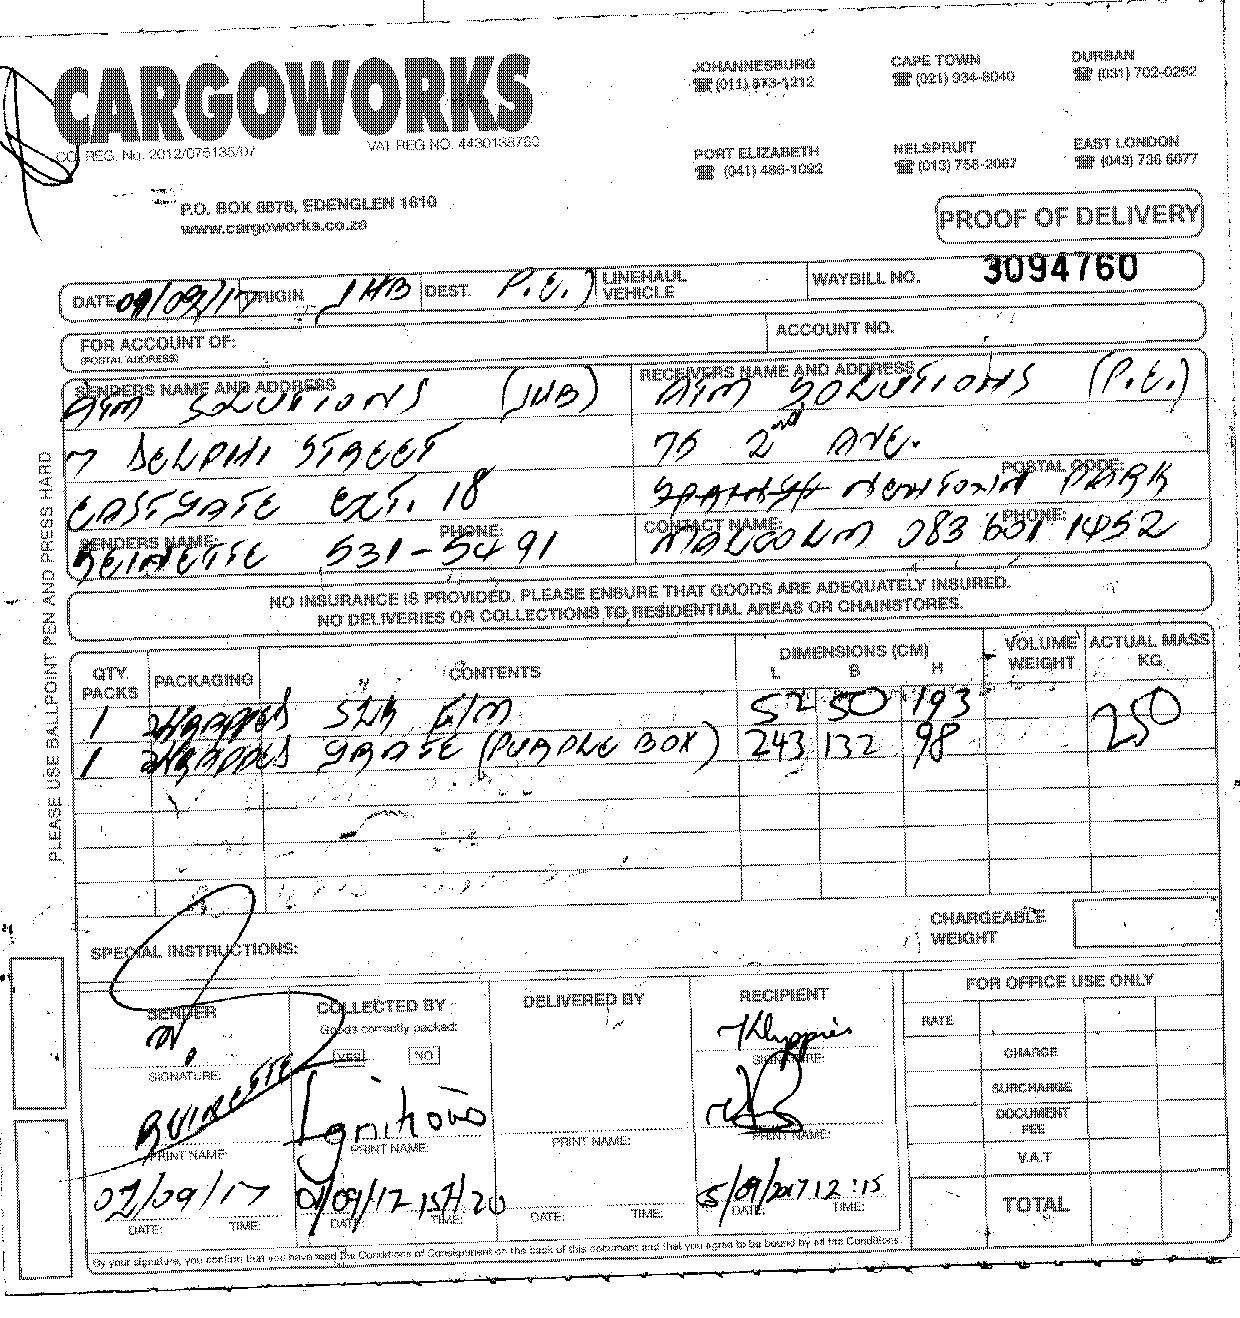 CARGOWORKS
CO. REG. No. 2012/075135/07
VAT REG NO. 4430138760
P.O. BOX 8878, EDENGLEN 1610
www.cargoworks.co.za
JOHANNESBURG
CAPE TOWN
(021) 934-8040
DURBAN
(031) 702-0252
PORT ELIZABETH
(041) 486-1092
NELSPRUIT
(013) 758-2067
EAST LONDON
(043) 736 6077
PROOF OF DELIVERY
DATE /09/17 ORIGIN JHB DEST. P.E. LINEHAUL VEHICLE WAYBILL NO. 3094760
FOR ACCOUNT OF: ACCOUNT NO.
(POSTAL ADDRESS)
SENDERS NAME AND ADDRESS
ATM SOLUTIONS (JHB)
7 DELPHI STREET
EASTGATE EXT. 18
SENDERS NAME: PHONE:
531-5491
RECEIVERS NAME AND ADDRESS
ATM SOLUTIONS (P.E.)
75 2nd AVE.
POSTAL CODE:
NEWTON PARK
CONTACT NAME: PHONE:
MALCOLM 083 601 1452
PLEASE USE BALLPOINT PEN AND PRESS HARD
NO INSURANCE IS PROVIDED. PLEASE ENSURE THAT GOODS ARE ADEQUATELY INSURED.
NO DELIVERIES OR COLLECTIONS TO RESIDENTIAL AREAS OR CHAINSTORES.
QTY. PACKS PACKAGING CONTENTS DIMENSIONS (CM) L B H VOLUME WEIGHT ACTUAL MASS KG
1 WRAPPED 52 50 193 250
1 WRAPPED (PURPLE BOX) 243 132 98
CHARGEABLE WEIGHT
SPECIAL INSTRUCTIONS:
SENDER
SIGNATURE:
PRINT NAME:
/09/17
DATE: TIME:
COLLECTED BY
Goods correctly packed:
YES NO
PRINT NAME:
DATE: TIME:
DELIVERED BY
PRINT NAME:
DATE: TIME:
RECIPIENT
SIGNATURE:
PRINT NAME:
5/09/2017 12:15
DATE: TIME:
FOR OFFICE USE ONLY
RATE
CHARGE
SURCHARGE
DOCUMENT FEE
V.A.T
TOTAL
By your signature, you confirm that you have read the Conditions of Consignment on the back of this document and that you agree to be bound by all the Conditions.